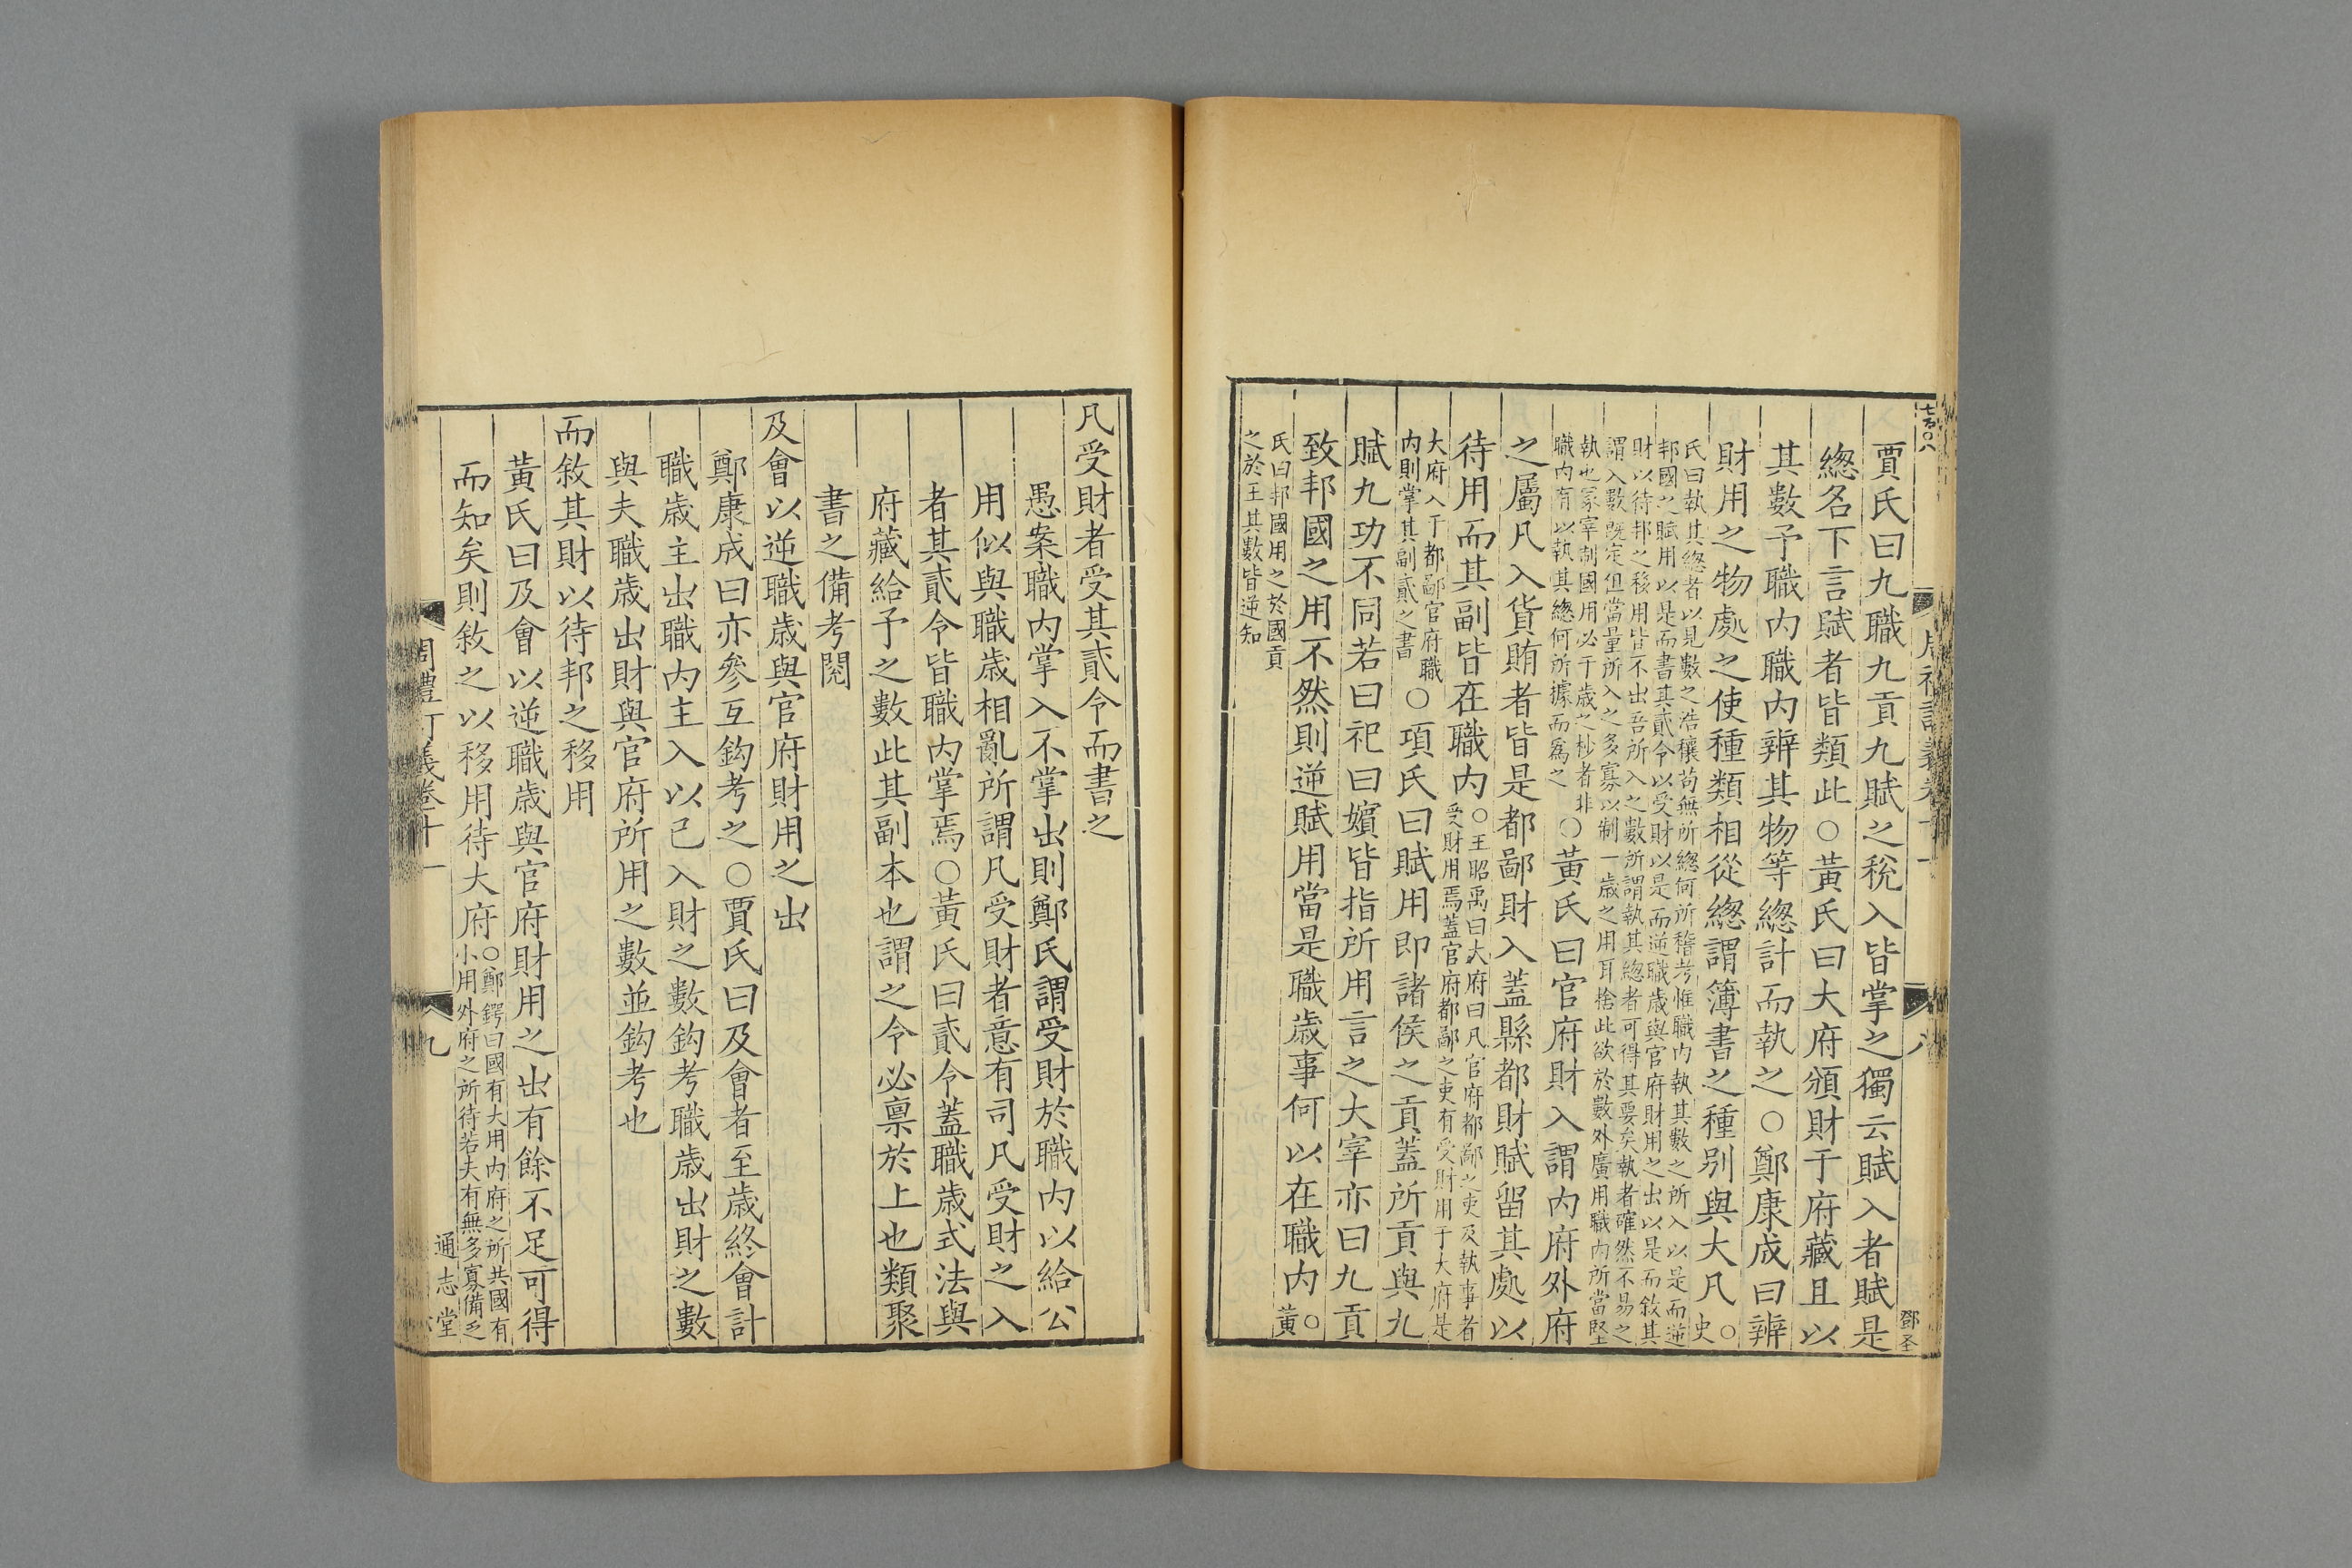 賈氏曰九職九貢九賦之稅入皆掌之獨云賦入者賦是
總名下言賦者皆類此○黃氏曰大府頒財于府藏且以
其數予職内職内辨其物等總計而執之○鄭康成曰辨
財用之物處之使種類相從總謂簿書之種别與大凡○史
氏曰執其總者以見數之浩穰苟無所總何所稽考惟職内執其數之所入以是而逆
邦國之賦用以是而書其貳令以受財以是而逆職歲與官府財用之出以是而敘其
財以待邦之移用皆不出吾所入之數所謂執其總者可得其要矣執者確然不易之
謂入數既定但當量所入之多寡以制一歲之用耳捨此欲於數外廣用職内所當堅
執也冢宰制國用必于歲之杪者非
職内有以執其總何所據而為之
○黃氏曰官府財入謂内府外府
之屬凡入貨賄者皆是都鄙財入蓋縣都財賦留其處以
待用而其副皆在職内
○王昭禹曰大府曰凡官府都鄙之吏及執事者
受財用焉蓋官府都鄙之吏有受財用于大府是
大府入于都鄙官府職
内則掌其副貳之書
○項氏曰賦用即諸侯之貢蓋所貢與九
賦九功不同若曰祀曰嬪皆指所用言之大宰亦曰九貢
致邦國之用不然則逆賦用當是職歲事何以在職内○黃
氏曰邦國用之於國貢
之於王其數皆逆知
八
鄧圣
凡受財者受其貳令而書之
愚案職内掌入不掌出則鄭氏謂受財於職内以給公
用似與職歲相亂所謂凡受財者意有司凡受財之入
者其貳令皆職内掌焉○黃氏曰貳令蓋職歲式法與
府藏給予之數此其副本也謂之令必稟於上也類聚
書之備考閱
及會以逆職歲與官府財用之出
鄭康成曰亦參互鈎考之○賈氏曰及會者至歲終會計
職歲主出職内主入以己入財之數鈎考職歲出財之數
與夫職歲出財與官府所用之數並鈎考也
而敘其財以待邦之移用
黃氏曰及會以逆職歲與官府財用之出有餘不足可得
而知矣則敘之以移用待大府
○鄭鍔曰國有大用内府之所共國有
小用外府之所待若夫有無多寡備乏
周禮訂義卷十一
九
通志堂